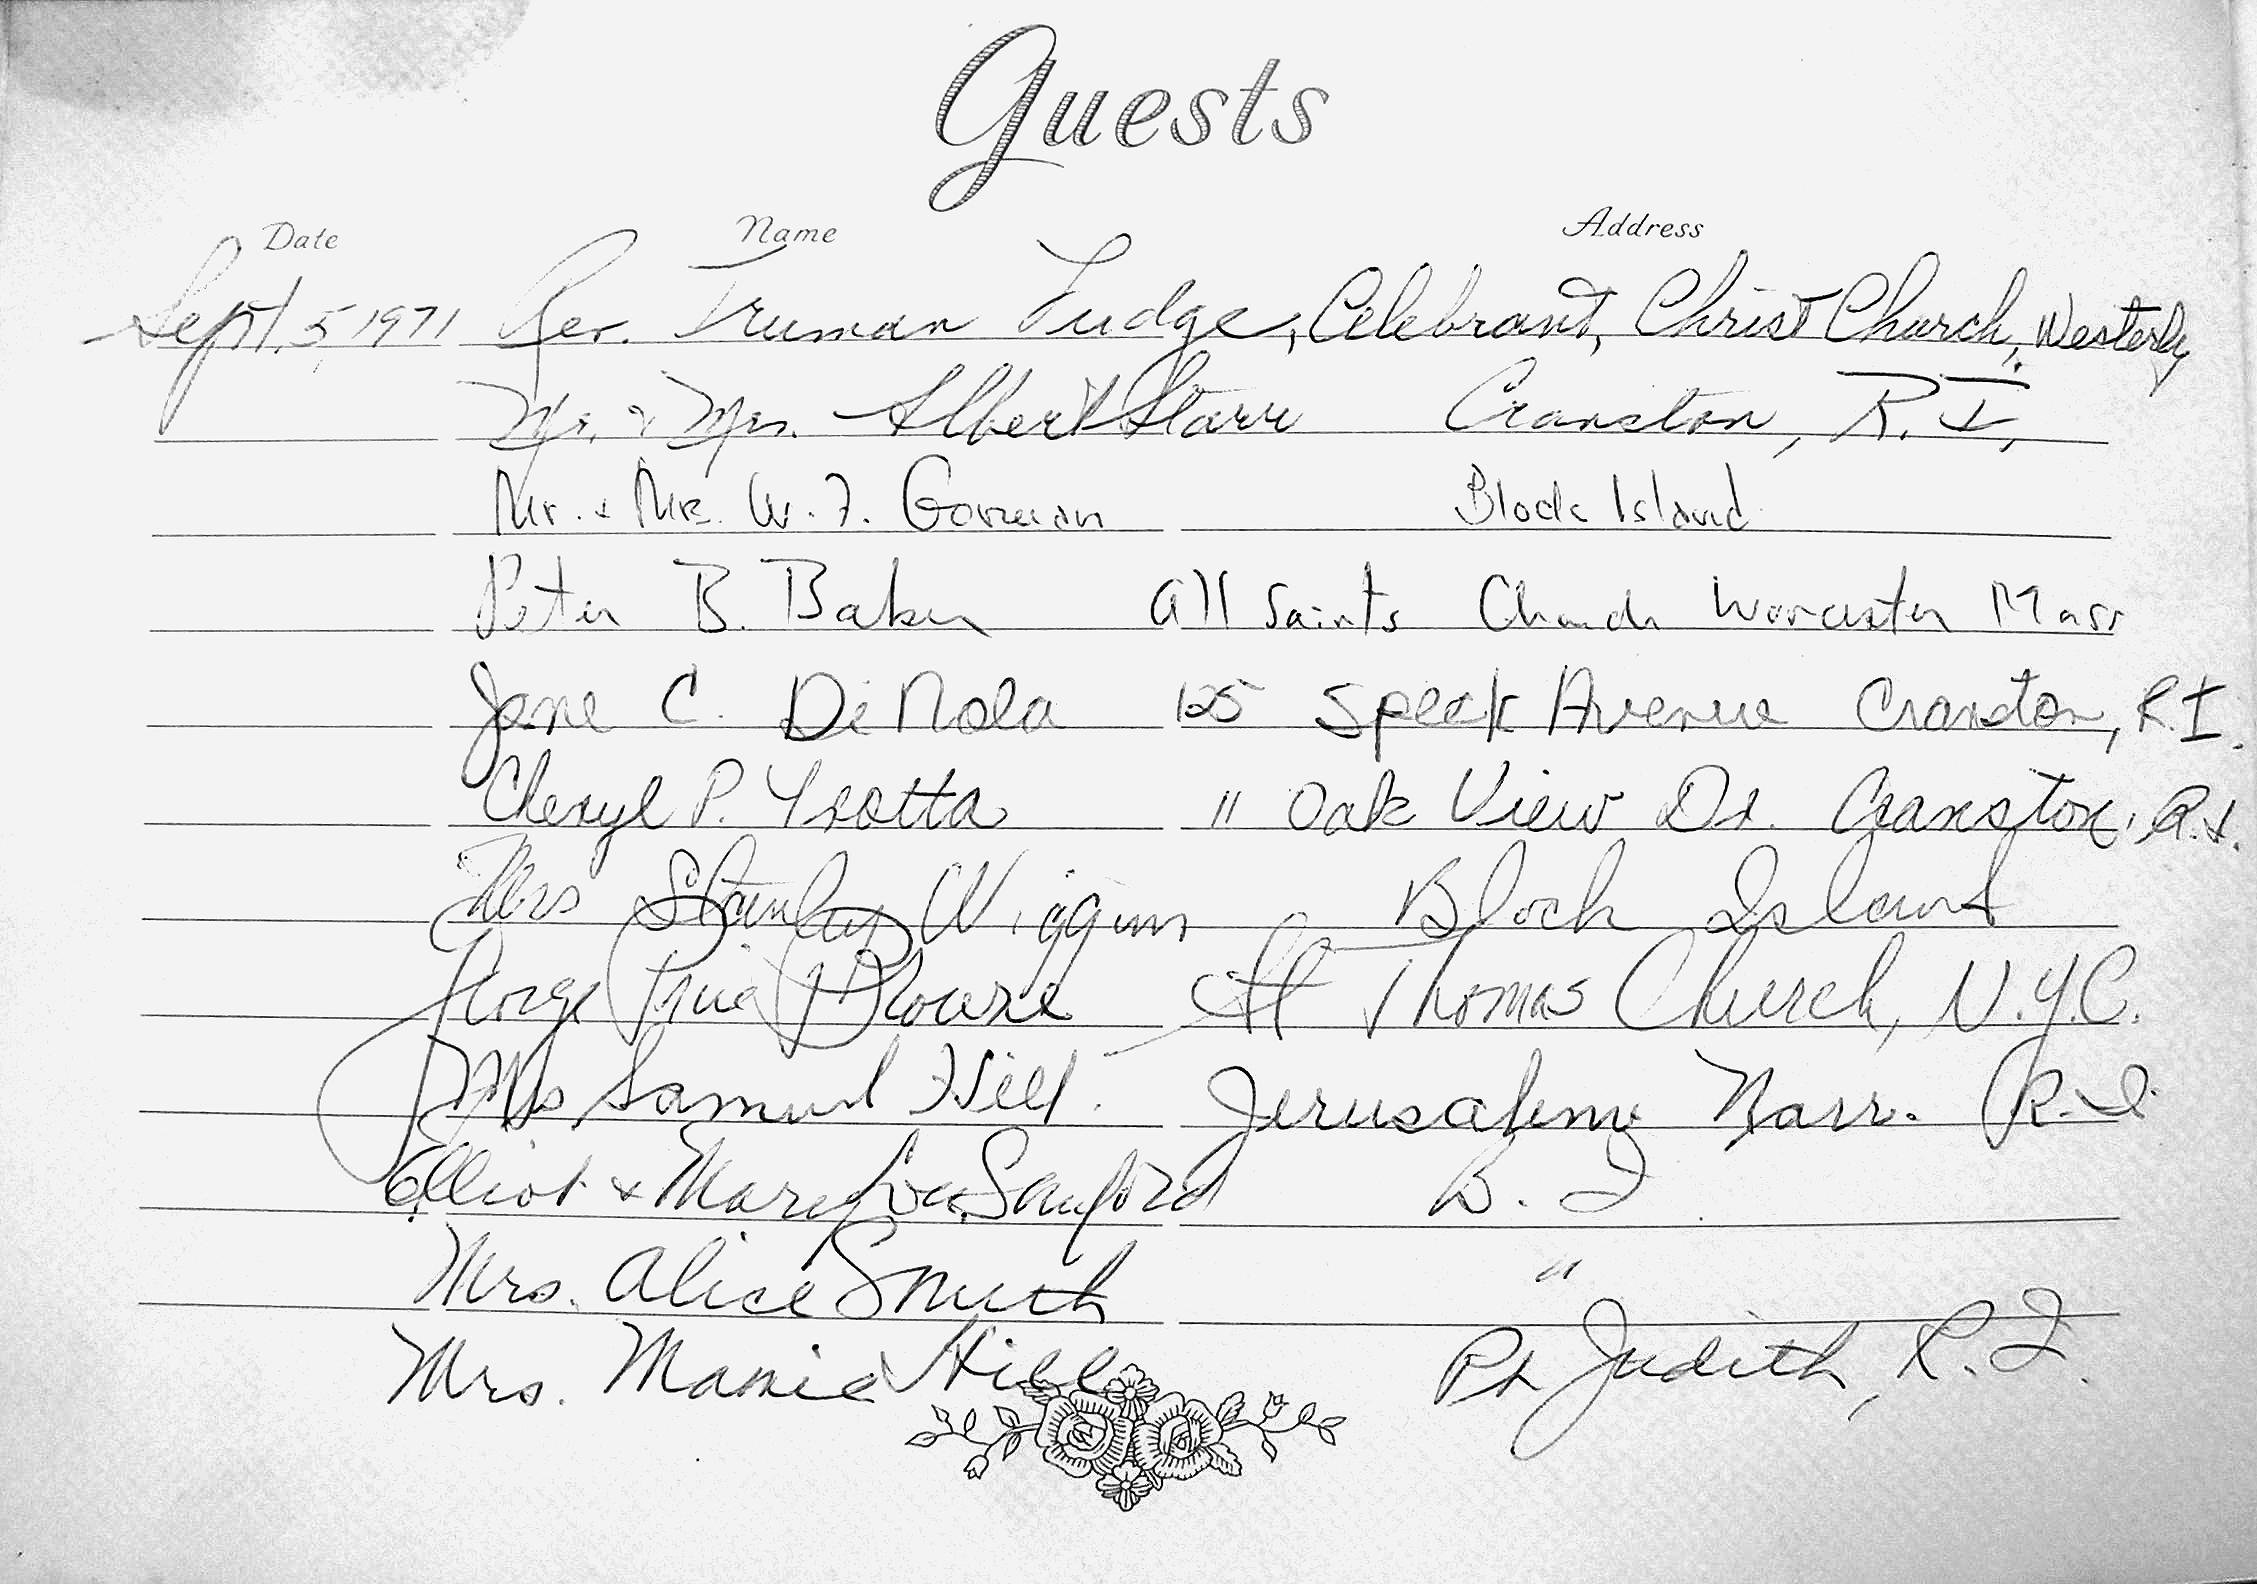 Guests
Date Name Address
Sept. 5, 1971 Rev. Truman Fudge, Celebrant, Christ Church, Westerly
Mr. & Mrs. Albert Starr Cranston, R.I.
Mr. & Mrs. W. F. Gorman Block Island
Peter B. Baker All Saints Church Worcester Mass
Jane C. DiNola 125 Speck Avenue Cranston, R.I.
Cheryl P. Trotta 11 Oak View Dr. Cranston, R.I.
Mrs Stanley Wiggins Block Island
George Browne St Thomas Church, N.Y.C.
Mrs Samuel Hill. Jerusalem Narr. R.I.
Elliot & Mary Lou Sanford B. I
Mrs. Alice Smith "
Mrs. Mamie Hill Pt Judith, R.I.